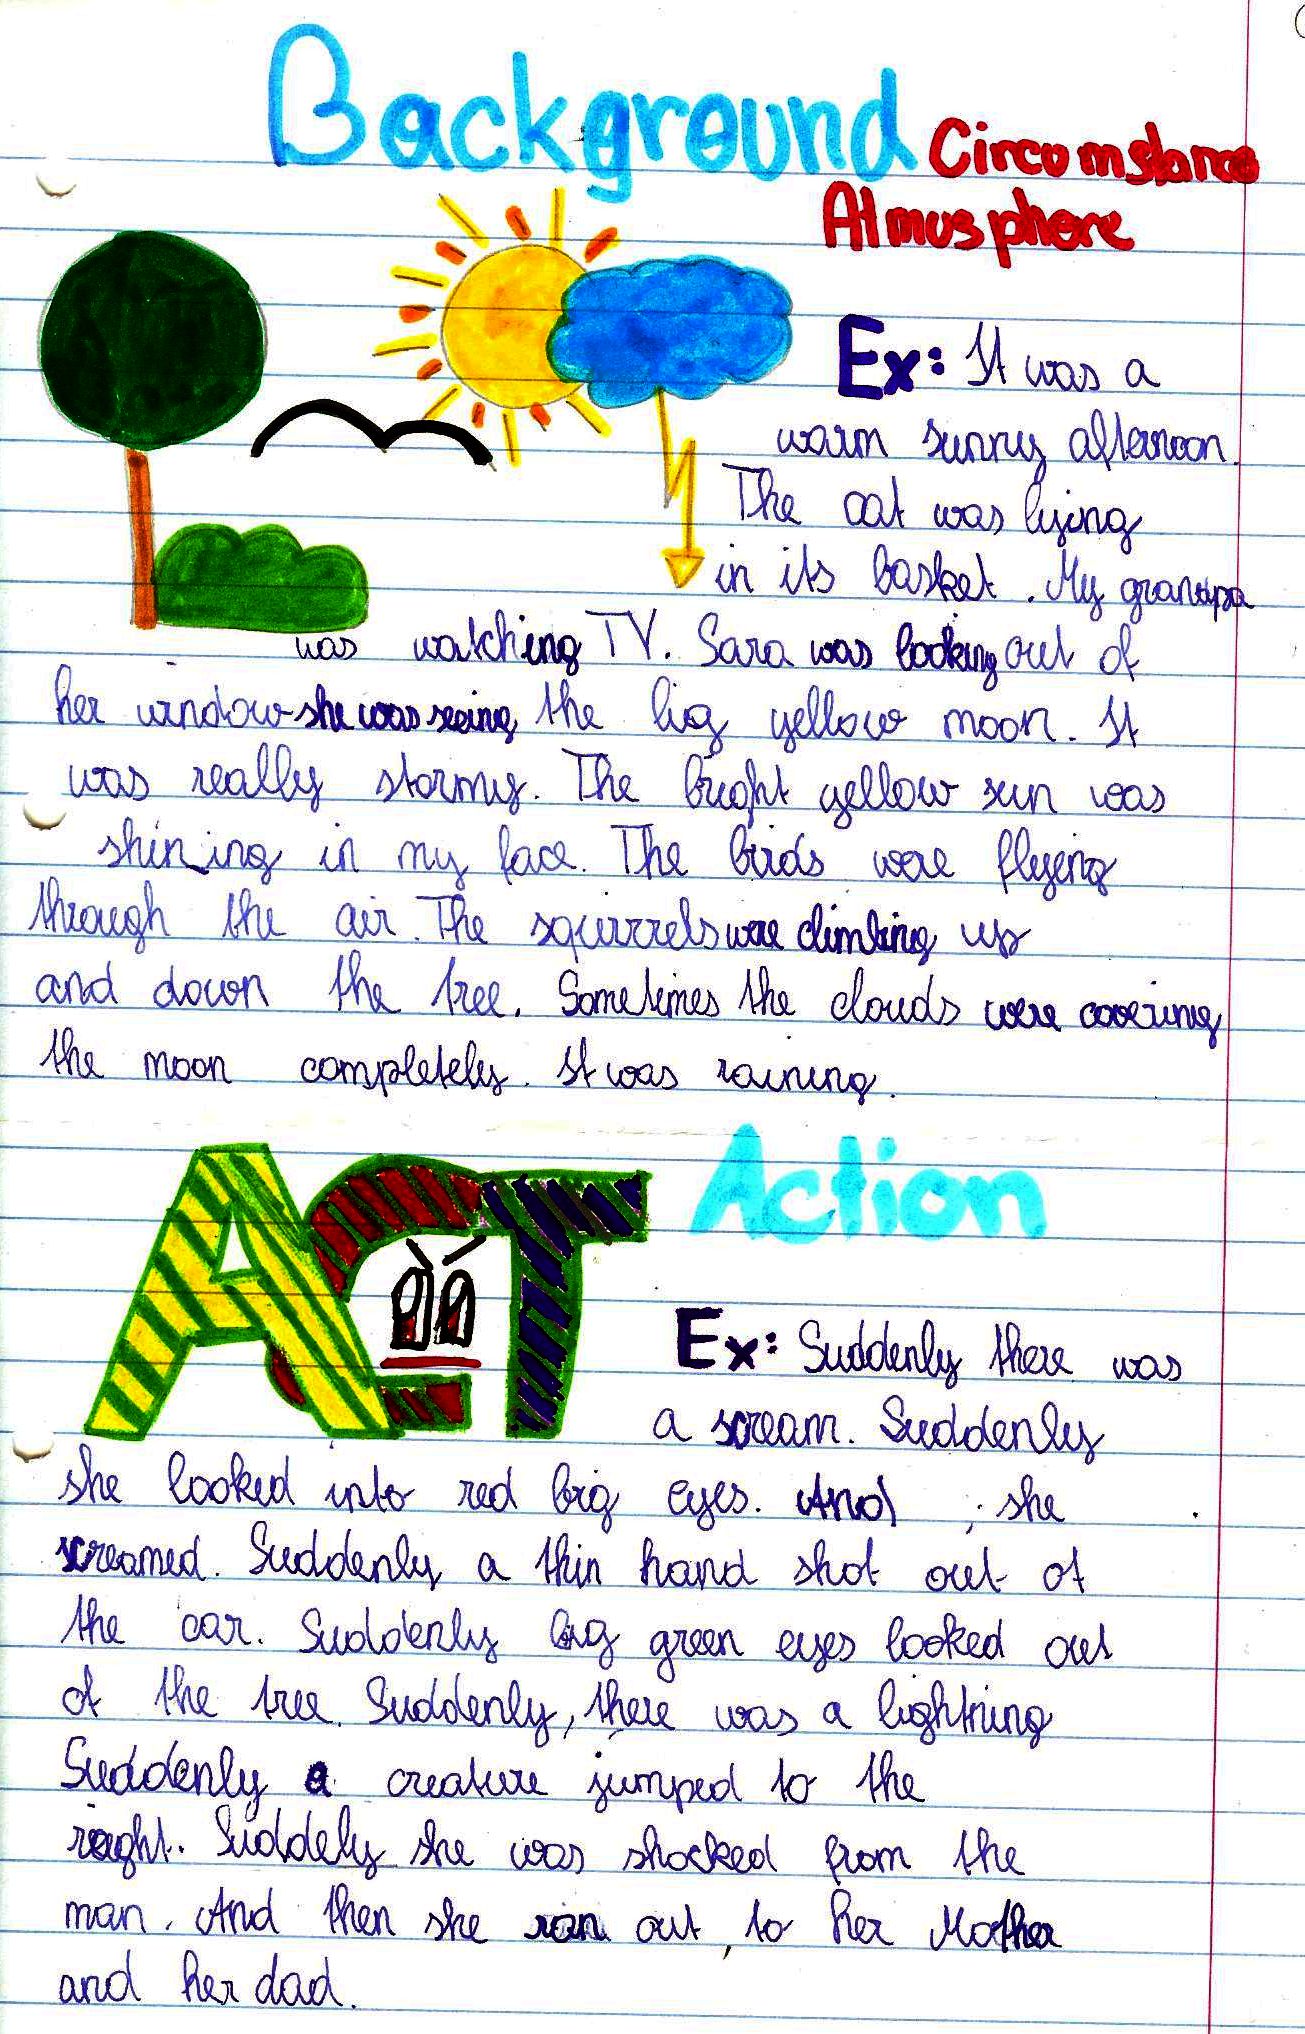 Background Circumstance
Atmosphere
Ex: It was a
warm sunny afternoon.
The cat was lying
in its basket. My grandpa
was watching TV. Sara was looking out of
her window she was seeing the big yellow moon. It
was really stormy. The bright yellow sun was
shining in my face. The birds were flying
through the air. The squirrels were climbing up
and down the tree. Sometimes the clouds were covering
the moon completely. It was raining.
ACT Action
Ex: Suddenly there was
a scream. Suddenly
she looked into red big eyes. And ; she
screamed. Suddenly a thin hand shot out of
the car. Suddenly big green eyes looked out
of the tree. Suddenly, there was a lightning
Suddenly a creature jumped to the
right. Suddely she was shocked from the
man. And then she ran out, to her Mother
and her dad.